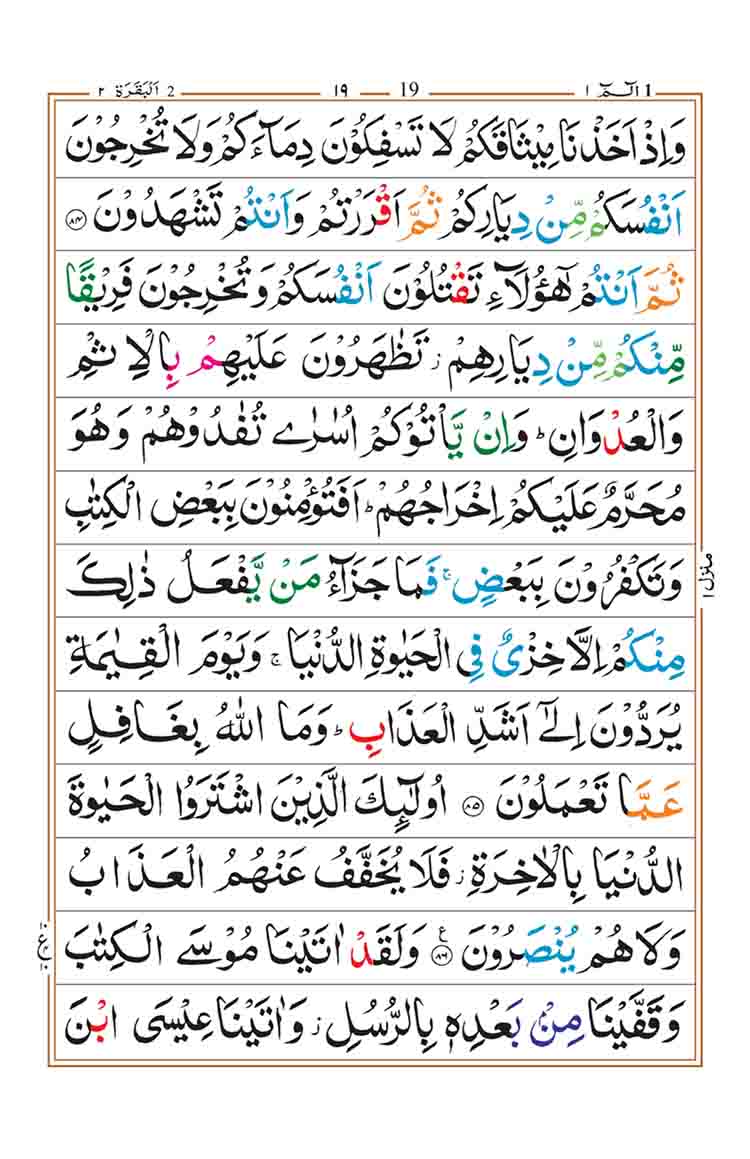 الٓمّٓ ١ 1 19 ١٩ اَلْبَقَرَة ٢ 2
وَاِذْ اَخَذْنَا مِيْثَاقَكُمْ لَا تَسْفِكُوْنَ دِمَآءَكُمْ وَلَا تُخْرِجُوْنَ
اَنْفُسَكُمْ مِّنْ دِيَارِكُمْ ثُمَّ اَقْرَرْتُمْ وَاَنْتُمْ تَشْهَدُوْنَ ۝٨٤
ثُمَّ اَنْتُمْ هٰٓؤُلَآءِ تَقْتُلُوْنَ اَنْفُسَكُمْ وَتُخْرِجُوْنَ فَرِيْقًا
مِّنْكُمْ مِّنْ دِيَارِهِمْ ز تَظٰهَرُوْنَ عَلَيْهِمْ بِالْاِثْمِ
وَالْعُدْوَانِ ؕ وَاِنْ يَّاْتُوْكُمْ اُسٰرٰى تُفٰدُوْهُمْ وَهُوَ
مُحَرَّمٌ عَلَيْكُمْ اِخْرَاجُهُمْ ؕ اَفَتُؤْمِنُوْنَ بِبَعْضِ الْكِتٰبِ
وَتَكْفُرُوْنَ بِبَعْضٍ ۚ فَمَا جَزَآءُ مَنْ يَّفْعَلُ ذٰلِكَ
مِنْكُمْ اِلَّا خِزْىٌ فِى الْحَيٰوةِ الدُّنْيَا ۚ وَيَوْمَ الْقِيٰمَةِ
يُرَدُّوْنَ اِلٰٓى اَشَدِّ الْعَذَابِ ؕ وَمَا اللّٰهُ بِغَافِلٍ
عَمَّا تَعْمَلُوْنَ ۝٨٥ اُولٰٓئِكَ الَّذِيْنَ اشْتَرَوُا الْحَيٰوةَ
الدُّنْيَا بِالْاٰخِرَةِ ز فَلَا يُخَفَّفُ عَنْهُمُ الْعَذَابُ
وَلَا هُمْ يُنْصَرُوْنَ ۝٨٦ ع وَلَقَدْ اٰتَيْنَا مُوْسَى الْكِتٰبَ
وَقَفَّيْنَا مِنْ بَعْدِهٖ بِالرُّسُلِ ز وَاٰتَيْنَا عِيْسَى ابْنَ
منزل ١